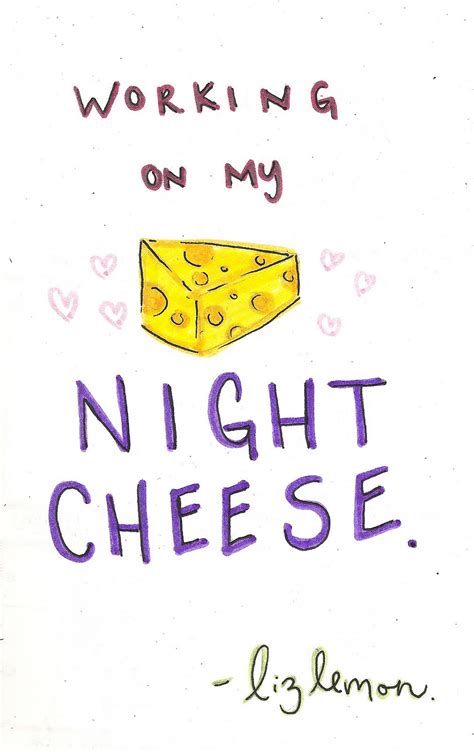 WORKING
ON MY
NIGHT
CHEESE.
- liz lemon.